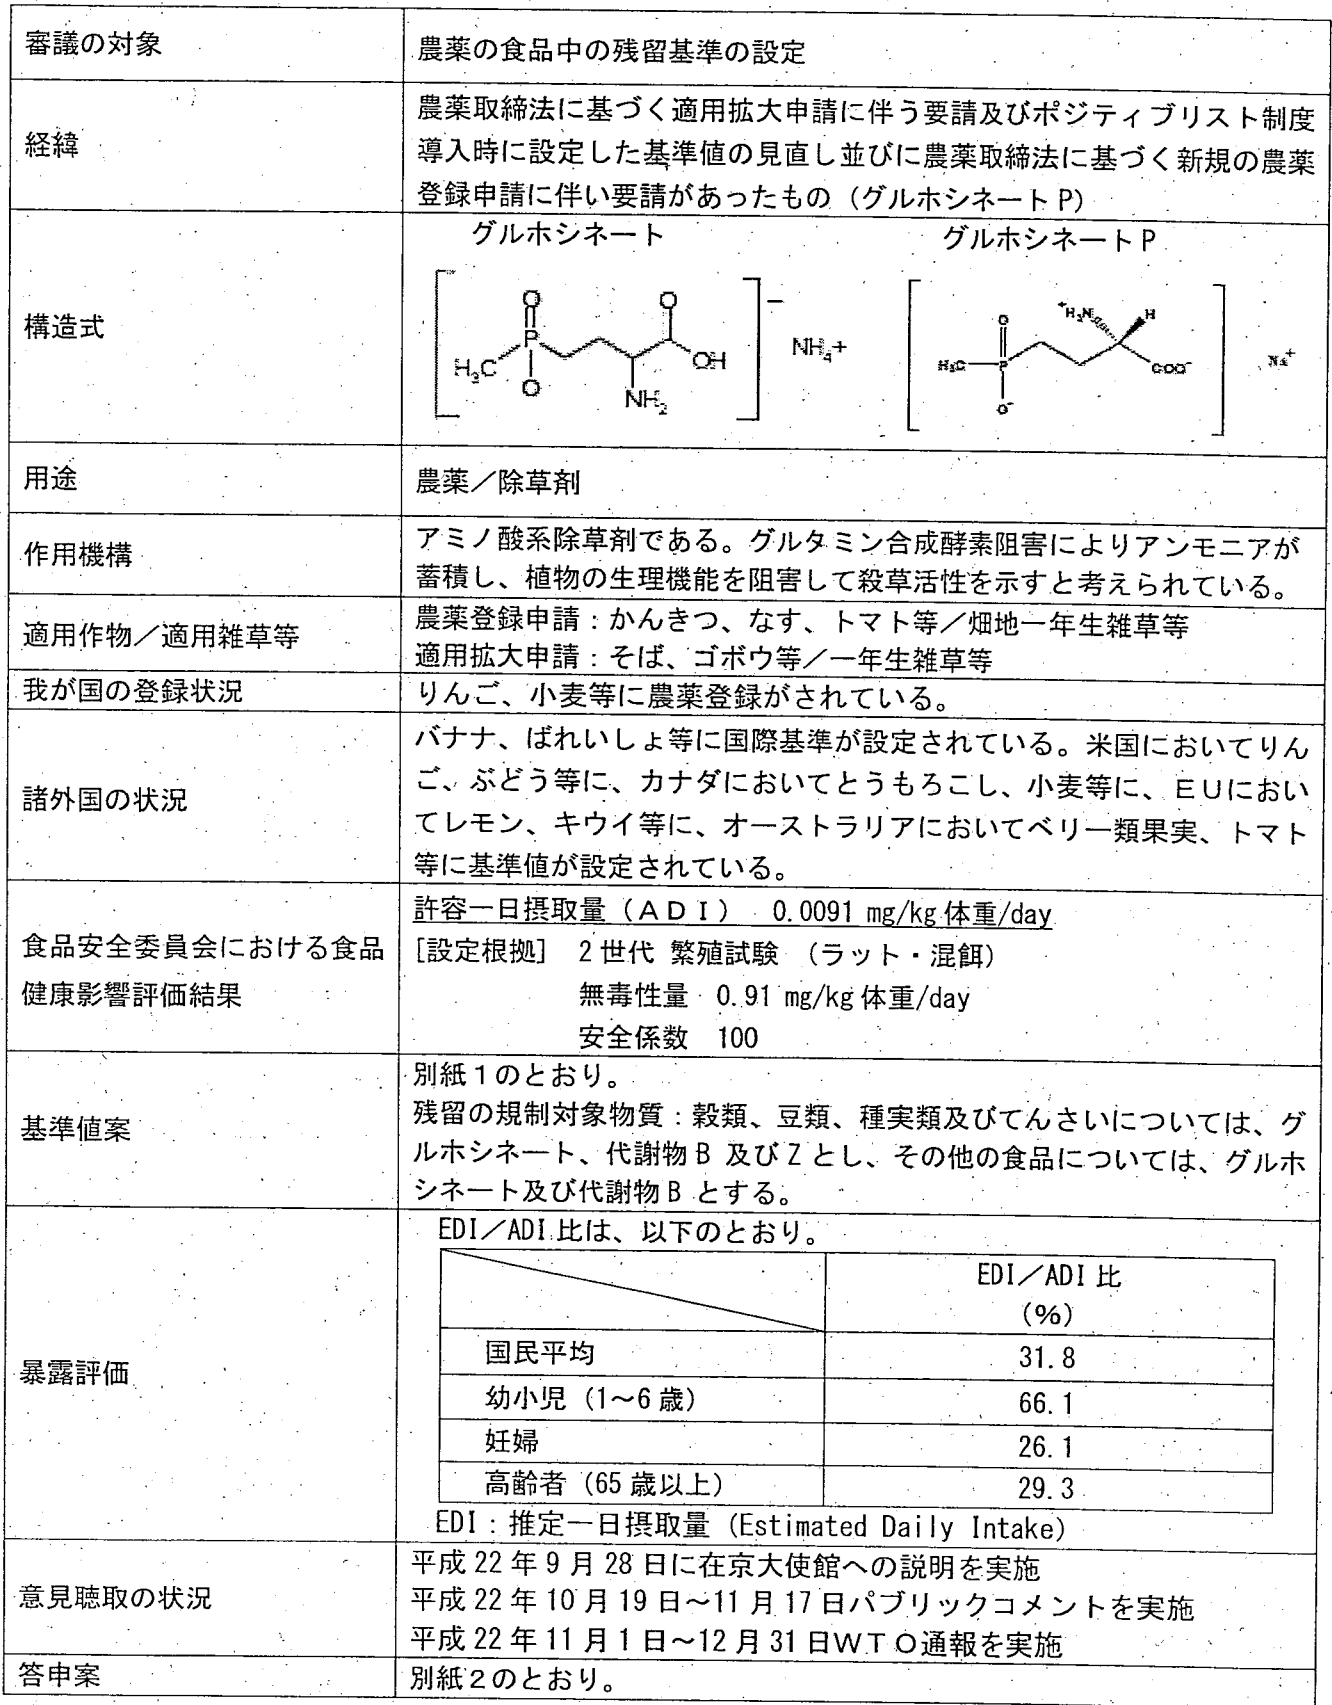 審議の対象
農薬の食品中の残留基準の設定
経緯
農薬取締法に基づく適用拡大申請に伴う要請及びポジティブリスト制度
導入時に設定した基準値の見直し並びに農薬取締法に基づく新規の農薬
登録申請に伴い要請があったもの（グルホシネートP）
構造式
グルホシネート
グルホシネートP
O
O
P
H₃C
O
OH
NH₂
−
NH₄+
O
⁺H₃N
H
H₃C
P
COO⁻
O⁻
Na⁺
用途
農薬／除草剤
作用機構
アミノ酸系除草剤である。グルタミン合成酵素阻害によりアンモニアが
蓄積し、植物の生理機能を阻害して殺草活性を示すと考えられている。
適用作物／適用雑草等
農薬登録申請：かんきつ、なす、トマト等／畑地一年生雑草等
適用拡大申請：そば、ゴボウ等／一年生雑草等
我が国の登録状況
りんご、小麦等に農薬登録がされている。
諸外国の状況
バナナ、ばれいしょ等に国際基準が設定されている。米国においてりん
ご、ぶどう等に、カナダにおいてとうもろこし、小麦等に、ＥＵにおい
てレモン、キウイ等に、オーストラリアにおいてベリー類果実、トマト
等に基準値が設定されている。
食品安全委員会における食品
健康影響評価結果
許容一日摂取量（ＡＤＩ） 0.0091 mg/kg体重/day
[設定根拠] 2世代 繁殖試験 （ラット・混餌）
無毒性量 0.91 mg/kg体重/day
安全係数 100
基準値案
別紙１のとおり。
残留の規制対象物質：穀類、豆類、種実類及びてんさいについては、グ
ルホシネート、代謝物B 及びZとし、その他の食品については、グルホ
シネート及び代謝物Bとする。
暴露評価
EDI／ADI比は、以下のとおり。
EDI／ADI比
(%)
国民平均
31.8
幼小児（1～6歳）
66.1
妊婦
26.1
高齢者（65歳以上）
29.3
EDI：推定一日摂取量（Estimated Daily Intake）
意見聴取の状況
平成22年9月28日に在京大使館への説明を実施
平成22年10月19日～11月17日パブリックコメントを実施
平成22年11月1日～12月31日ＷＴＯ通報を実施
答申案
別紙２のとおり。